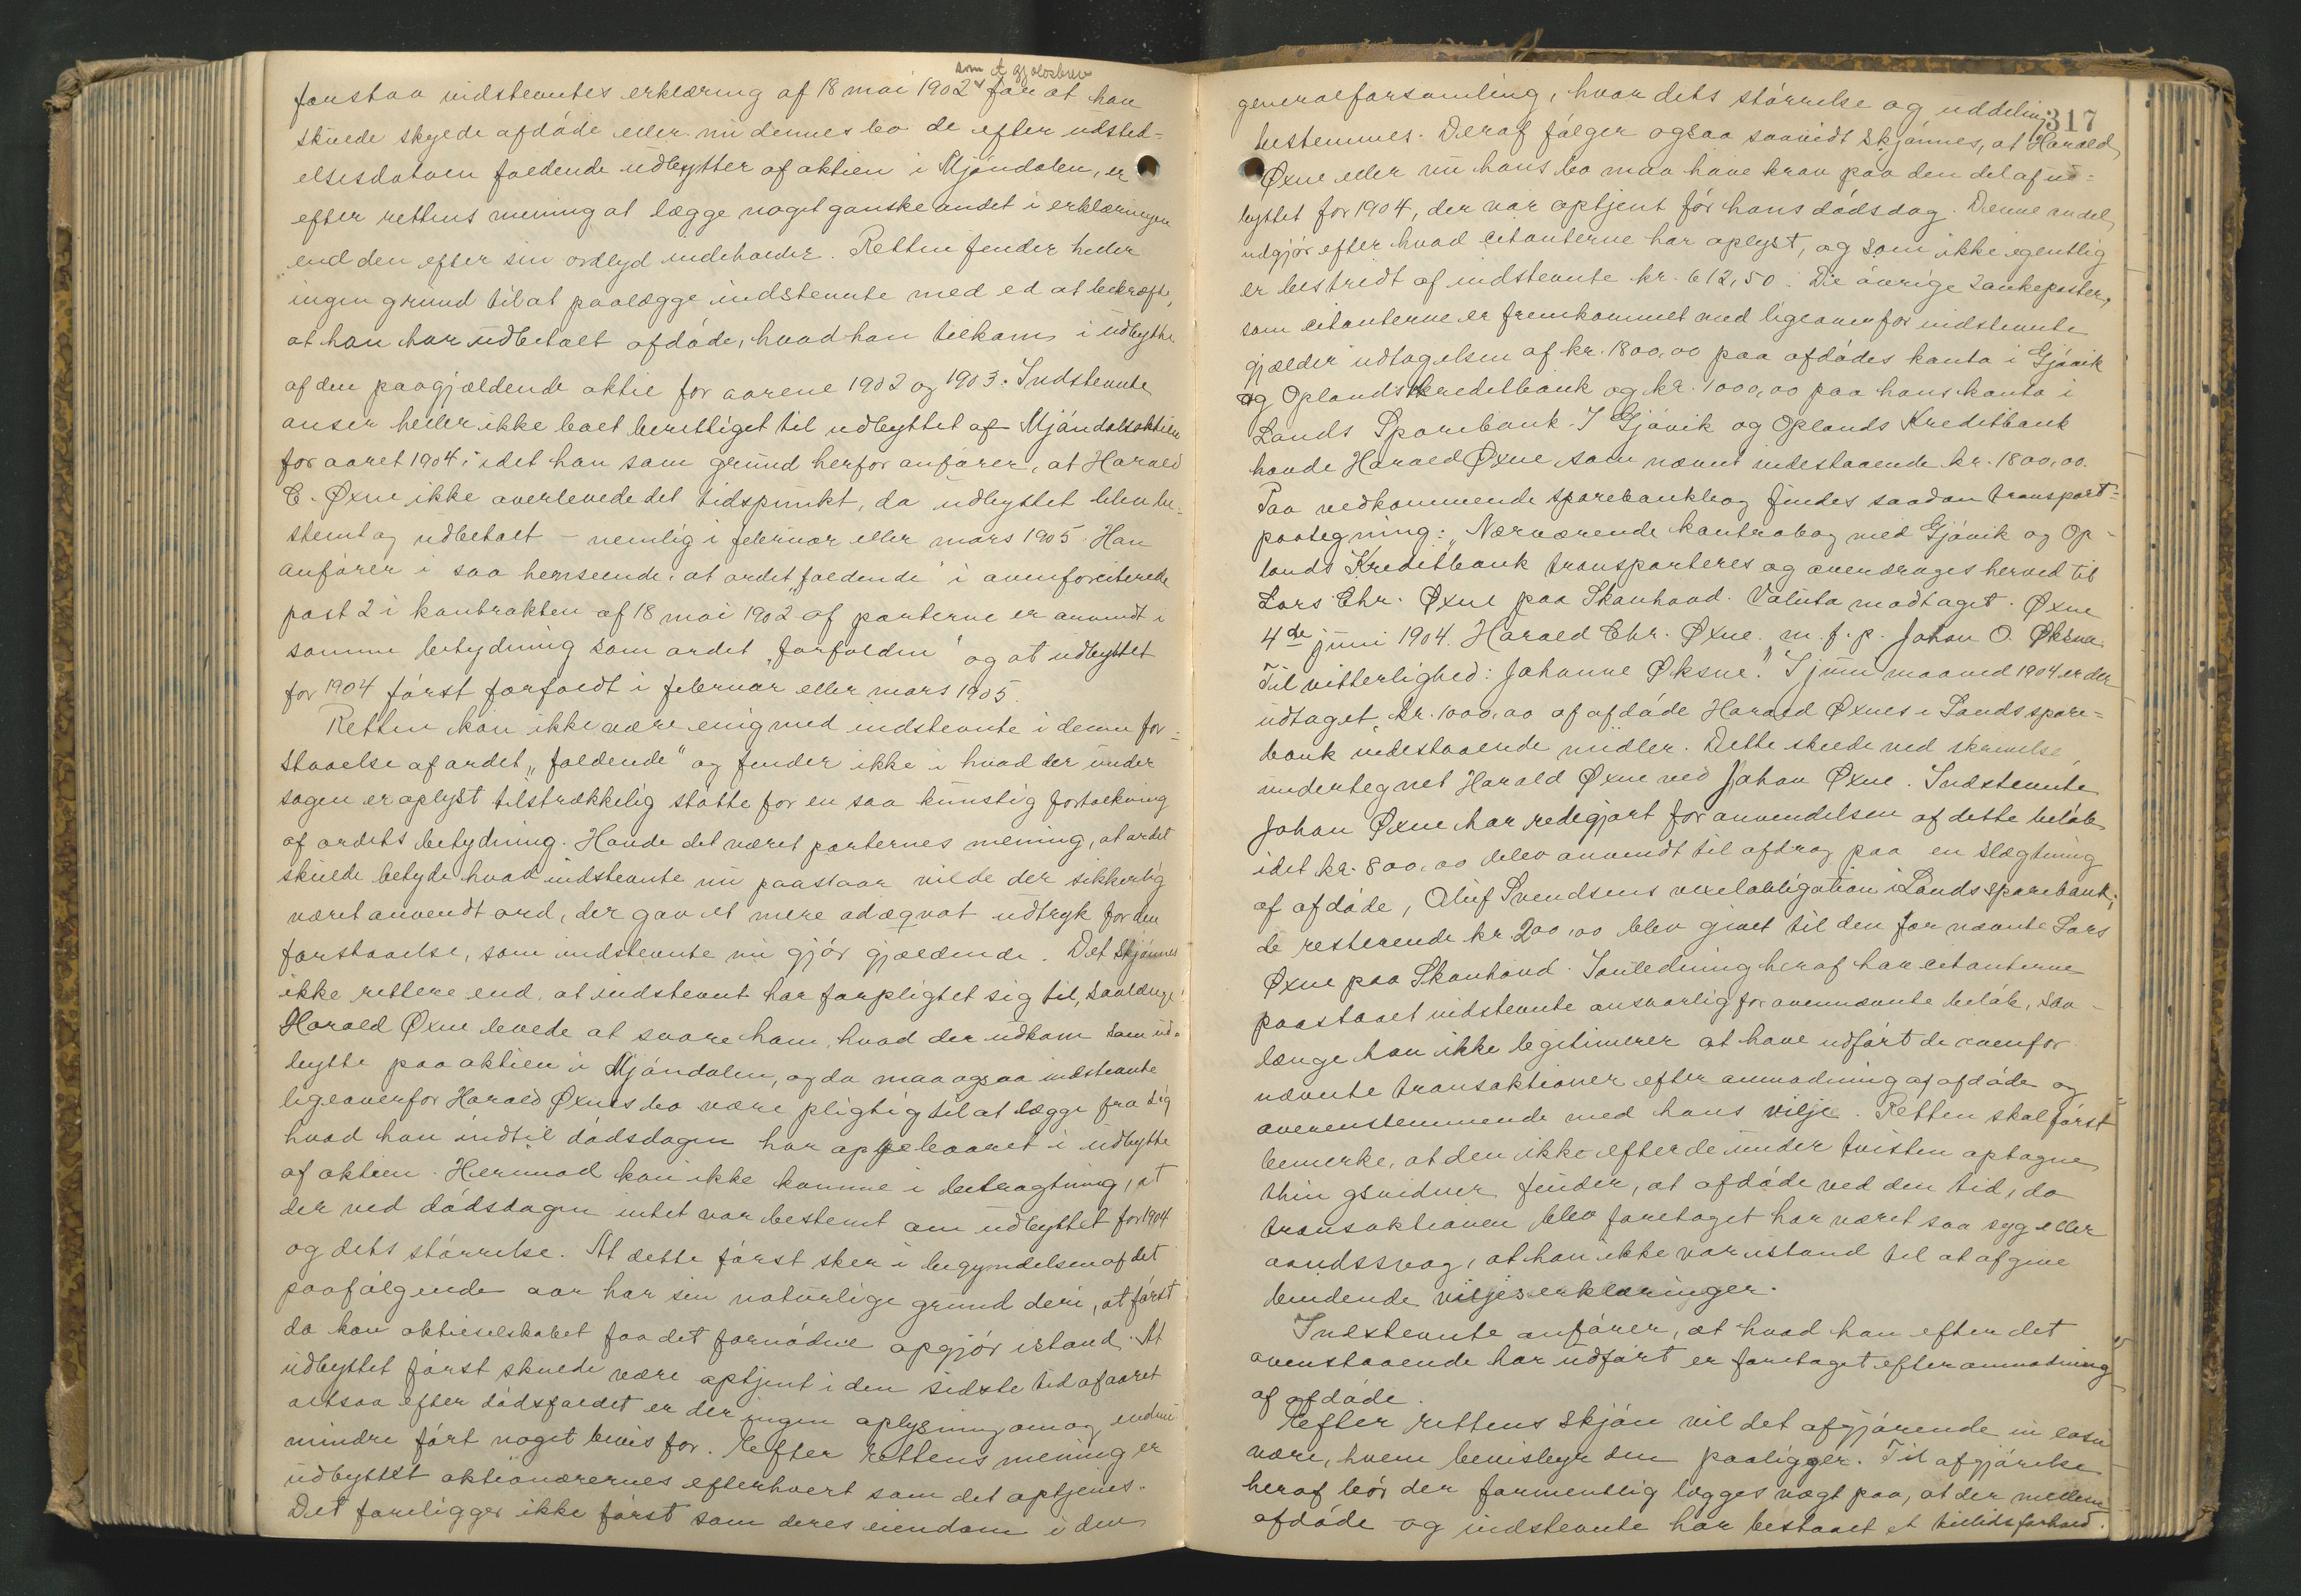 som et gjældsbrev
forstaa indstevntes erklæring af 18 mai 1902 for at han
skulde skylde afdöde eller nu dennes bo de efter udsted-
elsesdatoen faldende udbytter af aktien i Mjöndalen, er
efter rettens mening at lægge noget ganske andet i erklæringen
end den efter sin ordlyd indeholder. Retten finder heller
ingen grund til at paalægge indstevnte med ed at bekræfte,
at han har udbetalt afdöde, hvad han tilkom i udbytte
af den paagjældende aktie for aarene 1902 og 1903. Indstevnte
anser heller ikke boet berettiget til udbyttet af Mjöndalsaktien
for aaret 1904, idet han som grund herfor anförer, at Harald
C. Øxne ikke overlevede det tidspunkt, da udbyttet blev be-
stemt og udbetalt - nemlig i februar eller mars 1905. Han
anförer i saa henseende, at ordet „faldende" i ovenforciterede
post 2 i kontrakten af 18 mai 1902 af parterne er anvendt i
samme betydning som ordet „forfalden" og at udbyttet
for 1904 först forfaldt i februar eller mars 1905.
Retten kan ikke være enig med indstevnte i denne for-
staaelse af ordet „faldende" og finder ikke i hvad der under
sagen er oplyst tilstrækkelig stötte for en saa kunstig fortolkning
af ordets betydning. Havde det været parternes mening, at ordet
skulde betyde hvad indstevnte nu paastaar vilde der sikkerlig
været anvendt ord, der gav et mere adæqvat udtryk for den
forstaaelse, som indstevnte nu gjör gjældende. Det skjönnes
ikke rettere end, at indstevnt har forpligtet sig til, saalænge
Harald Øxne levede at svare ham, hvad der udkom som ud-
bytte paa aktien i Mjöndalen, og da maa ogsaa indstevnte
ligeoverfor Harald Øxnes bo være pligtig til at lægge fra sig
hvad han indtil dödsdagen har oppebaaret i udbytte
af aktien. Hermod kan ikke komme i betragtning, at
der ved dödsdagen intet var bestemt om udbyttet for 1904
og dets störrelse. At dette först sker i begyndelsen af det
paafölgende aar har sin naturlige grund deri, at först
da kan aktieselskabet faa det fornödne opgjör istand. At
udbyttet först skulde være optjent i den sidste tid af aaret
altsaa efter dödsfaldet er der ingen oplysning om og endnu
mindre fört noget bevis for. Efter rettens mening er
udbyttet aktionærernes efterhvert som det optjenes.
Det foreligger ikke först som deres eiendom i den
317
generalforsamling, hvor dets störrelse og uddeling
bestemmes. Deraf fölger ogsaa saavidt skjönnes, at Harald
Øxne eller nu hans bo maa have krav paa den del af ud-
byttet for 1904, der var optjent för hans dödsdag. Denne andel
udgjör efter hvad citanterne har oplyst, og som ikke egentlig
er bestridt af indstevnte kr. 612,50. De övrige sankeposter,
som citanterne er fremkommet med ligeoverfor indstevnte
gjælder udtagelsen af kr. 1800,00 paa afdödes konto i Gjövik
og Oplands kreditbank og kr. 1000,00 paa hans konto i
Lands Sparebank. I Gjövik og Oplands Kreditbank
havde Harald Øxne som nævnt indestaaende kr. 1800,00.
Paa vedkommende sparebankbog findes saadan transport-
paategning: „Nærværende kontrabog med Gjövik og Op-
lands Kreditbank transporteres og overdrages herved til
Lars Chr. Øxne paa Skanhaud. Valuta modtaget. Øxne
4de juni 1904. Harald Chr. Øxne. m. f. p. Johan O. Øksne.
Til vitterlighed: Johanne Øksne." I juni maaned 1904 er der
udtaget kr. 1000,00 af afdöde Harald Øxnes i Lands spare-
bank indestaaende midler. Dette skede ved skrivelse
undertegnet Harald Øxne ved Johan Øxne. Indstevnte
Johan Øxne har redegjort for anvendelsen af dette belöb
idet kr. 800,00 blev anvendt til afdrag paa en slægtning
af afdöde, Oluf Svendsens vexelobligation i Lands sparebank;
de resterende kr. 200,00 blev givet til den før nævnte Lars
Øxne paa Skanhaud. I anledning heraf har citanterne
paastaaet indstevnte ansvarlig for ovennævnte belöb, saa-
længe han ikke legitimerer at have udfört de ovenfor
nævnte transaktioner efter anmodning af afdöde og
overensstemmende med hans vilje. Retten skal först
bemerke, at den ikke efter de under tvisten optagne
thingsvidner finder, at afdöde ved den tid, da
transaktionen blev foretaget har været saa syg eller
aandssvag, at han ikke var istand til at afgive
bindende viljeserklæringer.
Indstevnte anförer, at hvad han efter det
ovenstaaende har udfört er foretaget efter anmodning
af afdöde.
Efter rettens skjön vil det afgjörende in casu
være, hvem bevisbyrden paaligger. Til afgjörelse
heraf bör der formentlig lægges vægt paa, at der mellem
afdöde og indstevnte har bestaaet et tillidsforhold.